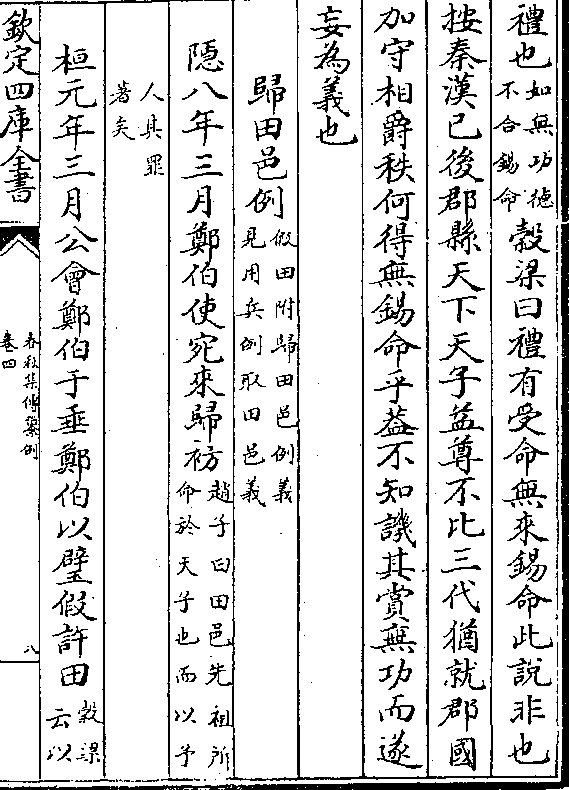 禮也如無功德不合錫命穀梁曰禮有受命無來錫命此說非也
按秦漢已後郡縣天下天子益尊不比三代猶就郡國
加守相爵秩何得無錫命乎葢不知譏其賞無功而遂
妄為義也
歸田邑例假田附歸田邑例義見用兵例取田邑義
隱八年三月鄭伯使宛來歸祊趙子曰田邑先祖所命於天子也而以予
人其罪著矣
桓元年三月公會鄭伯于垂鄭伯以璧假許田穀梁云以
欽定四庫全書
春秋集傳纂例
卷四
八